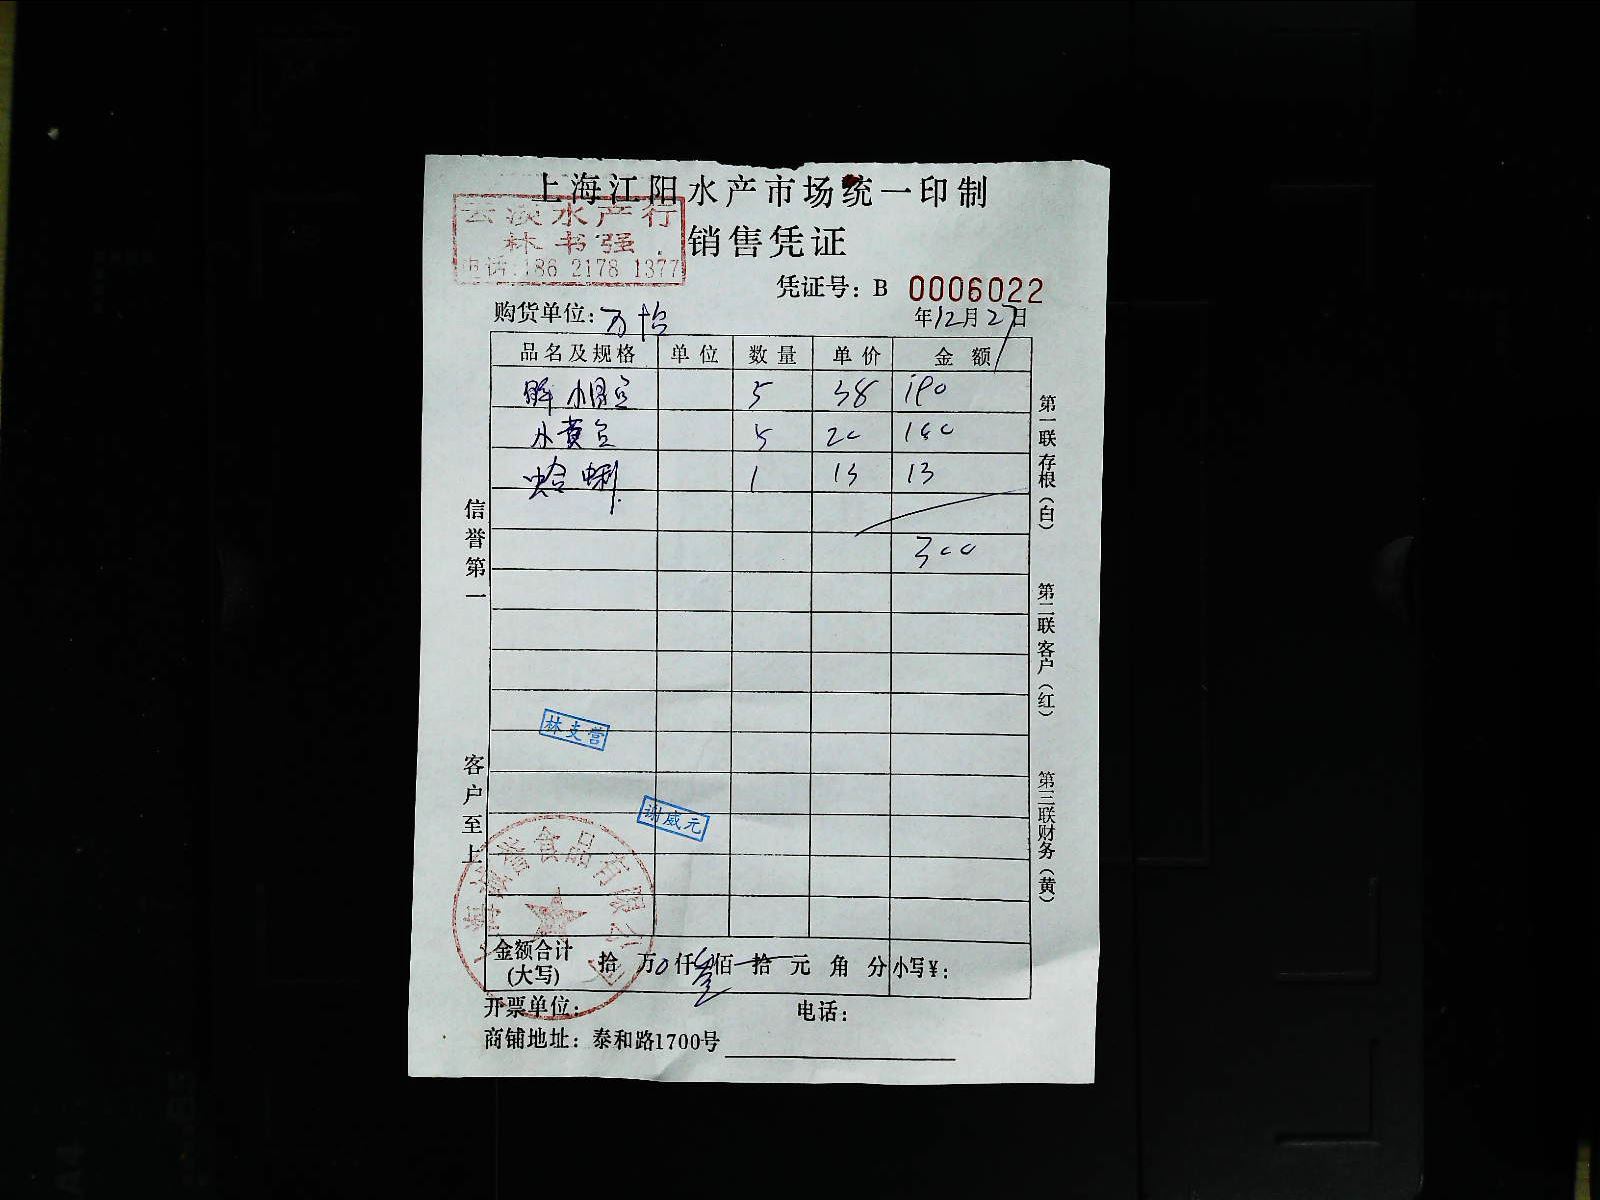 上海江阳水产市场统一印制
云溪水产行
林书强
电话:186 2178 1377
销售凭证
凭证号：B 0006022
购货单位：万怡
年12月27日
品名及规格 单位 数量 单价 金额
5 38 190
小黄豆 5 20 100
蛤蜊 1 13 13
300
信誉第一
客户至上
第一联存根（白）
第二联客户（红）
第三联财务（黄）
林支营
谢威元
上海诚誉食品有限公司
金额合计(大写) 拾 万0仟叁佰 拾 元 角 分 小写¥：
开票单位：
电话：
商铺地址：泰和路1700号